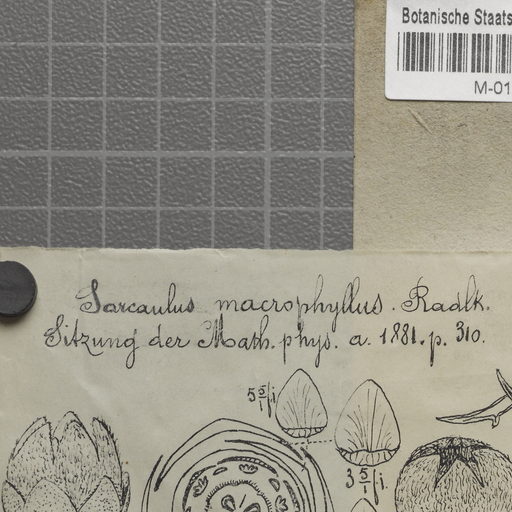 Botanische Staats
M-01
Sarcaulus macrophyllus. Radlk.
Sitzung der Math. phys. a. 1881. p. 310.
5 5/1 fi.
3 5/1 fi.